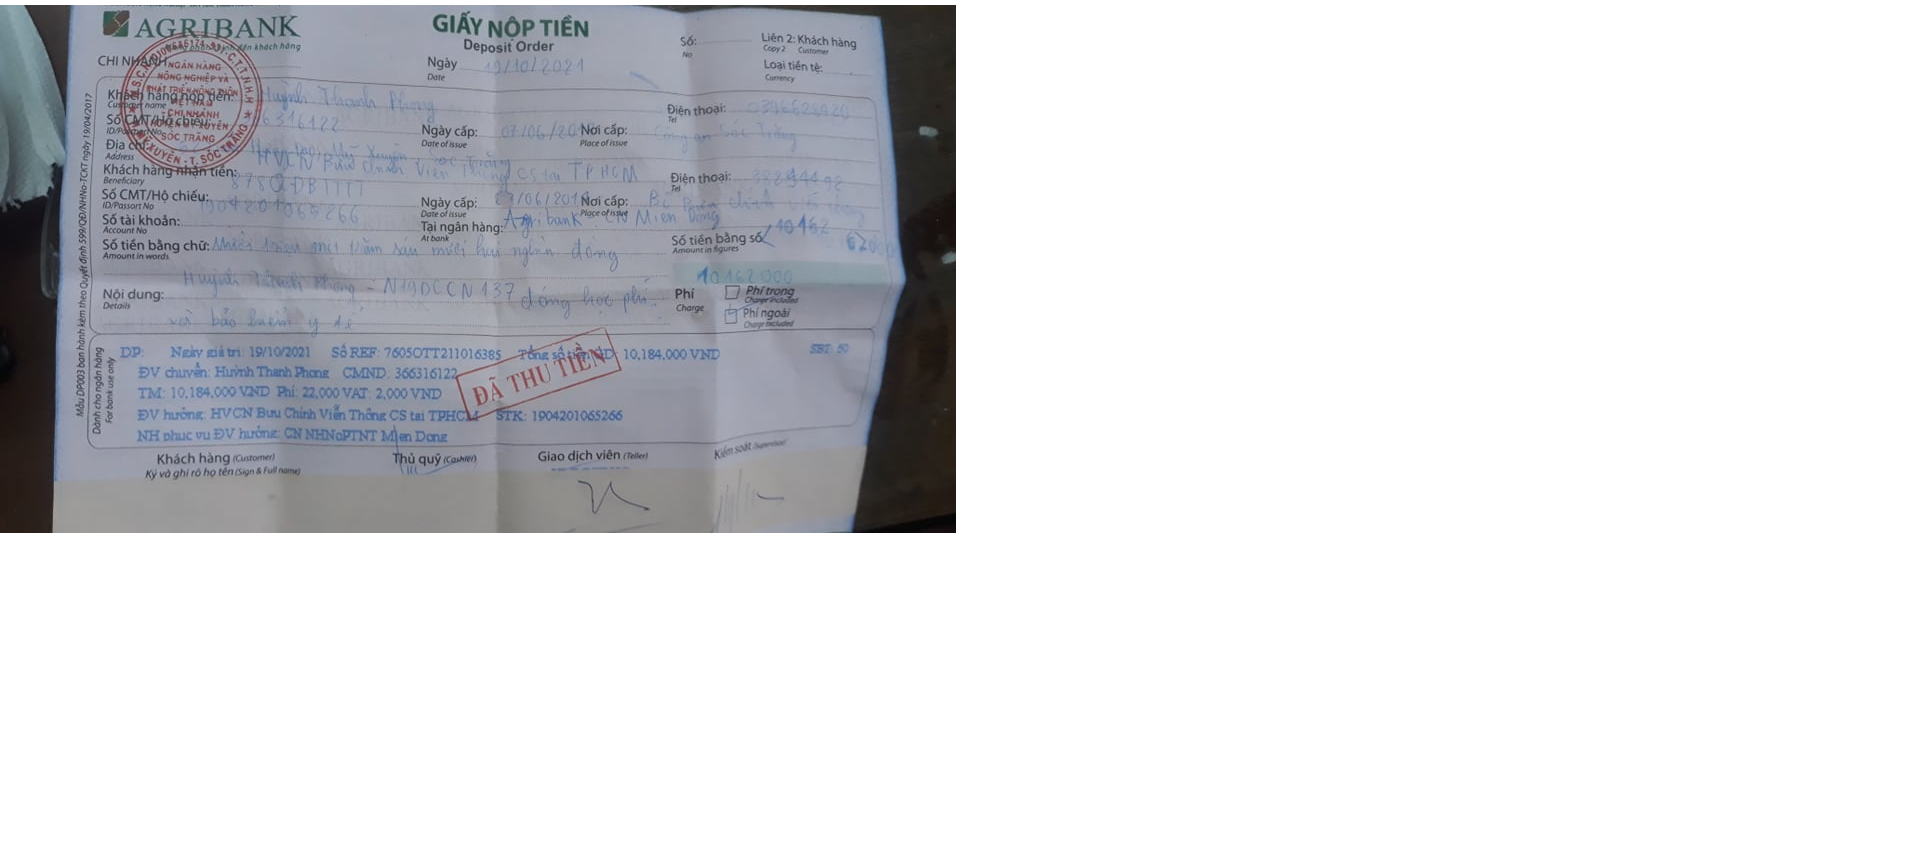 AGRIBANK
GIẤY NỘP TIỀN
Deposit Order
Số:
No
Liên 2: Khách hàng
Copy 2 Customer
CHI NHÁNH
Ngày 19/10/2021
Date
Loại tiền tệ:
Currency
NGÂN HÀNG
NÔNG NGHIỆP VÀ
PHÁT TRIỂN NÔNG THÔN
VIỆT NAM
CHI NHÁNH
SÓC TRĂNG
Khách hàng nộp tiền: Huỳnh Thanh Phong
Customer name
Điện thoại:
Tel
Số CMT/Hộ chiếu: 6316122
ID/Passport No
Ngày cấp: 07/06/20
Date of issue
Nơi cấp: Công an Sóc Trăng
Place of issue
Địa chỉ: Mỹ Xuyên, Sóc Trăng
Address
Khách hàng nhận tiền: HVCN Bưu Chính Viễn Thông CS tại TPHCM
Beneficiary
Điện thoại:
Tel
Số CMT/Hộ chiếu: 878QĐBTTTT
ID/Passort No
Ngày cấp: /06/201
Date of issue
Nơi cấp:
Place of issue
Số tài khoản: 1904201065266
Account No
Tại ngân hàng: Agribank CN Mien Dong
At bank
Số tiền bằng chữ: Mười triệu một trăm sáu mươi hai nghìn đồng
Amount in words
Số tiền bằng số: 10162
Amount in figures
10162000
Nội dung: Huỳnh Thanh Phong - N19DCCN137 đóng học phí
Details
và bảo hiểm y tế
Phí
Charge
Phí trong
Charge included
Phí ngoài
Charge excluded
Mẫu DP003 ban hành kèm theo Quyết định 599/QĐ/NHNo-TCKT ngày 19/04/2017
Dành cho ngân hàng
For bank use only
DP: Ngày giá trị: 19/10/2021 Số REF: 7605OTT211016385 Tổng số tiền 10,184,000 VND SBT: 60
ĐV chuyển: Huỳnh Thanh Phong CMND: 366316122
TM: 10,184,000 VND Phí: 22,000 VAT: 2,000 VND
ĐV hưởng: HVCN Bưu Chính Viễn Thông CS tai TPHCM STK: 1904201065266
NH phuc vu ĐV hưởng: CN NHNoPTNT Mien Dong
ĐÃ THU TIỀN
Khách hàng (Customer)
Ký và ghi rõ họ tên (Sign & Full name)
Thủ quỹ (Cashier)
Giao dịch viên (Teller)
Kiểm soát (Supervisor)